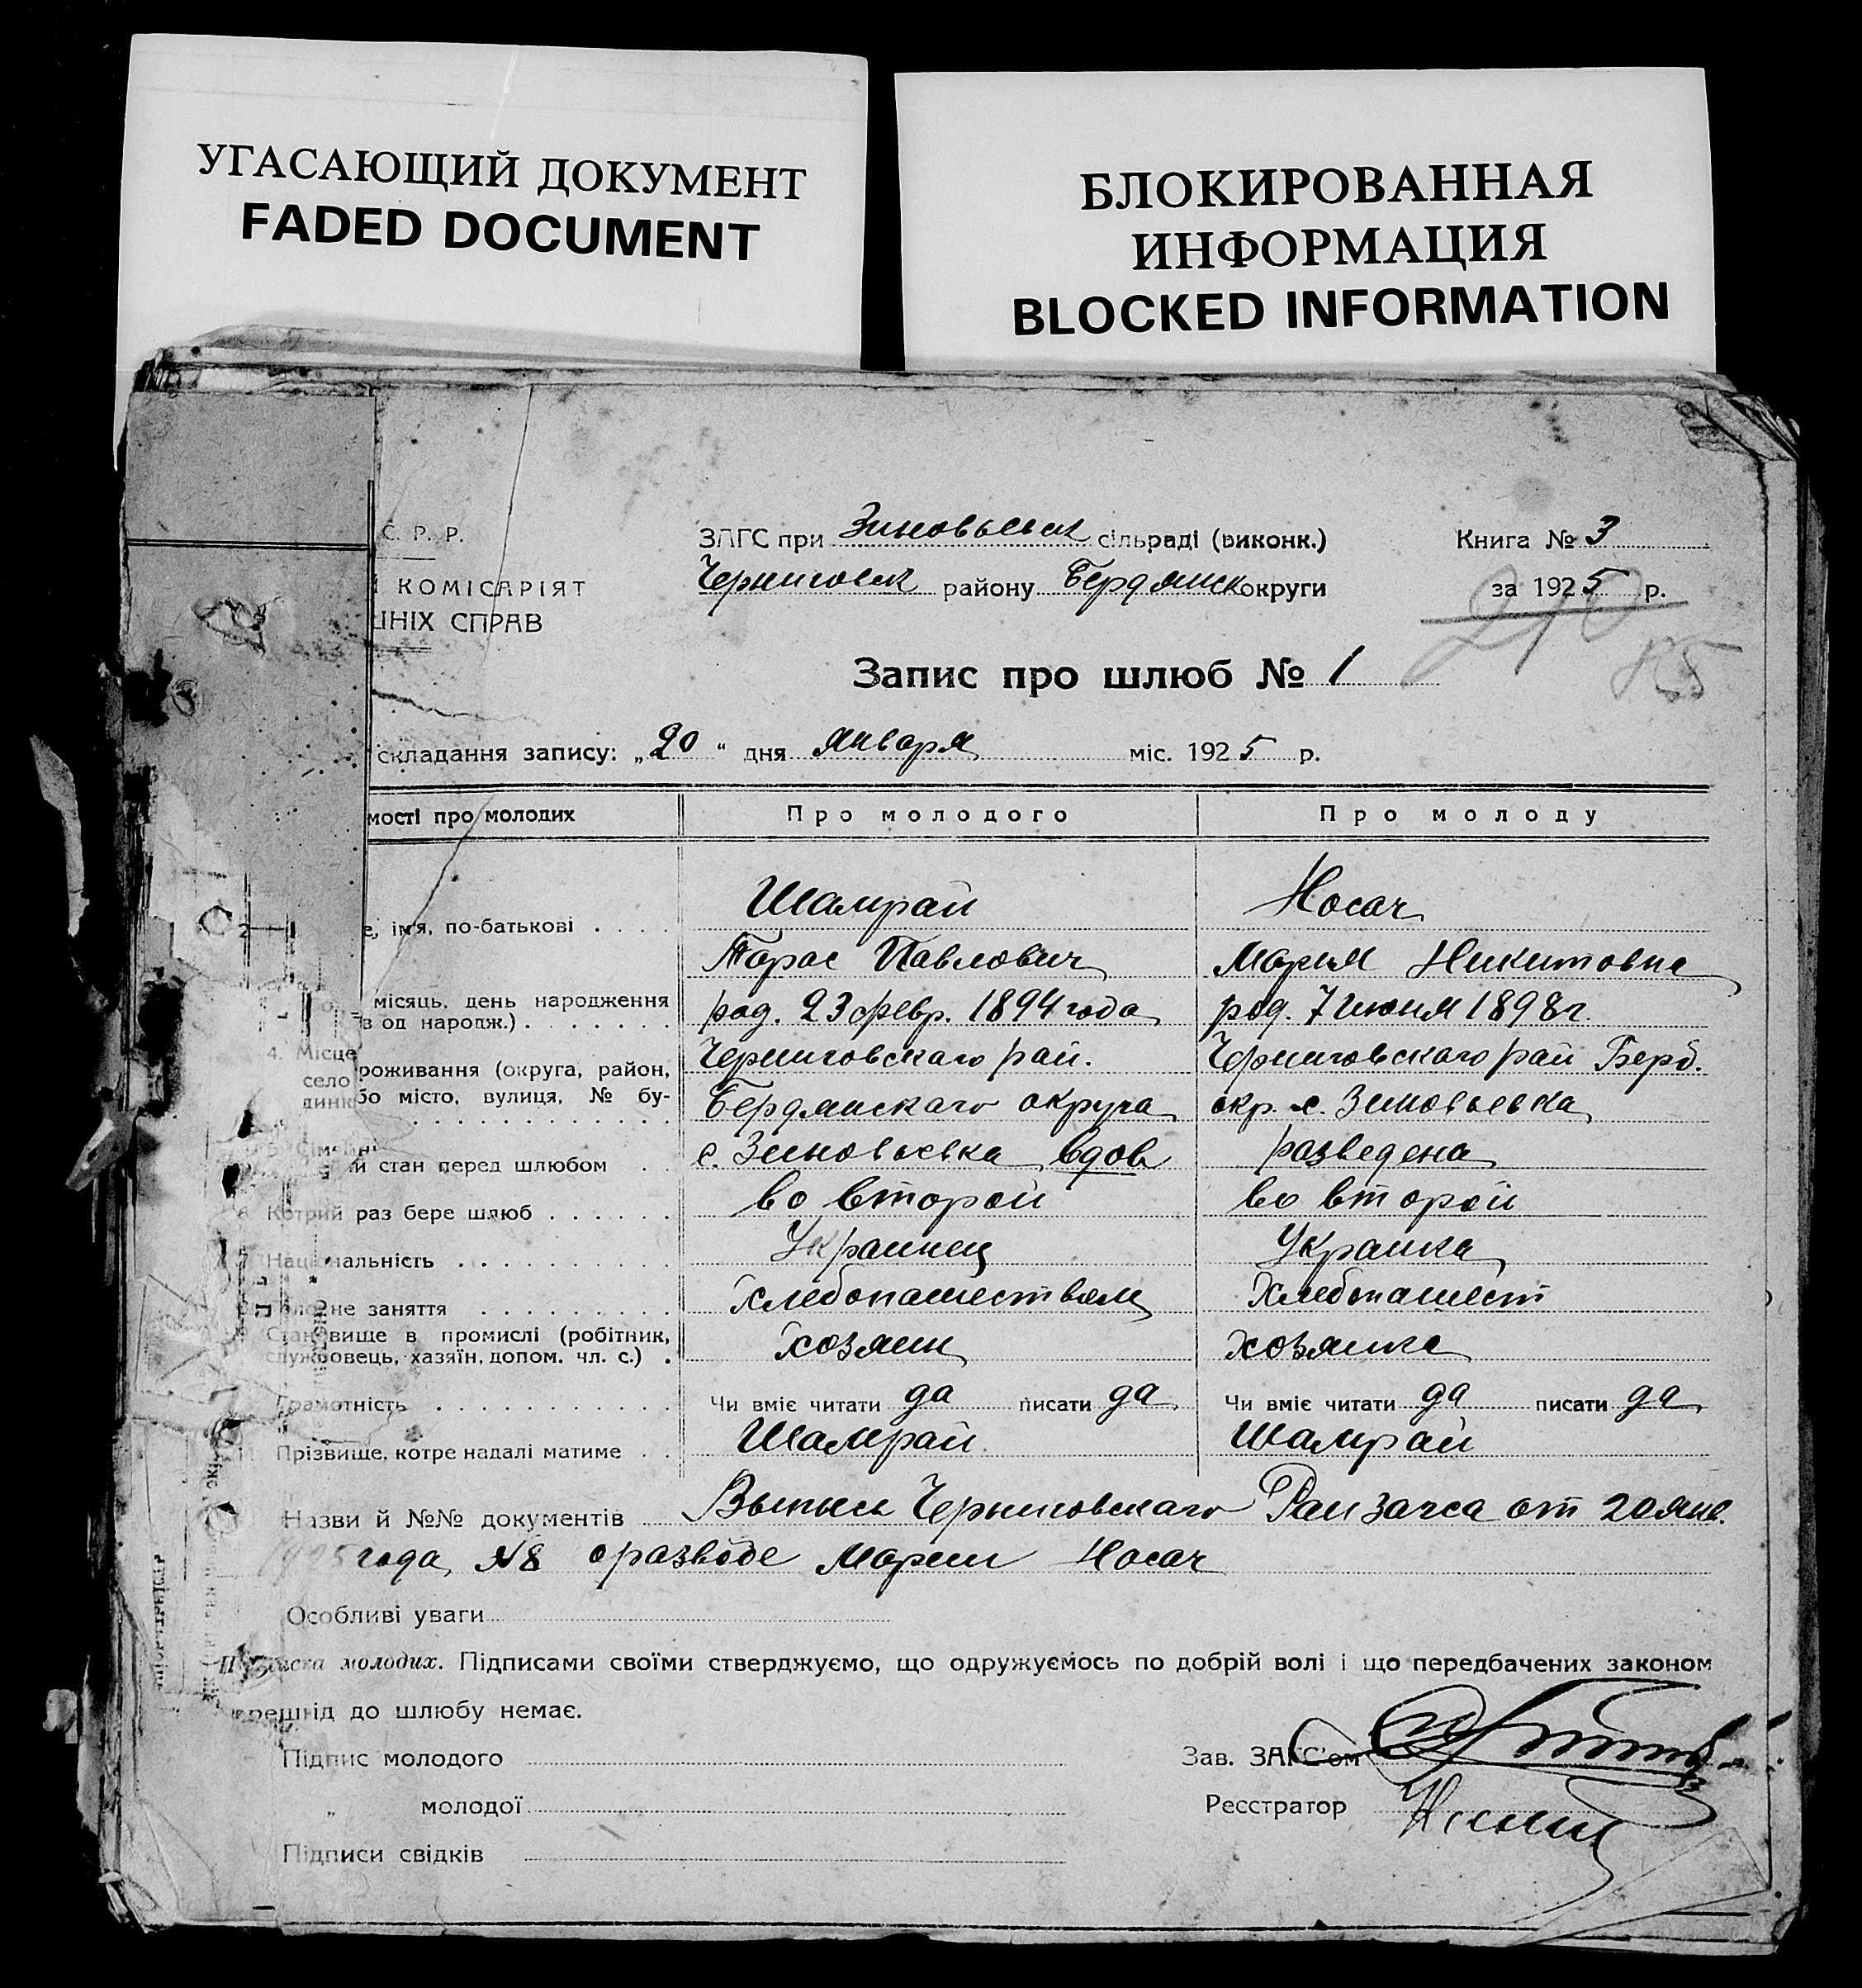 УГАСАЮЩИЙ ДОКУМЕНТ
FADED DOCUMENT
БЛОКИРОВАННАЯ
ИНФОРМАЦИЯ
BLOCKED INFORMATION
С. Р. Р.
КОМІСАРІЯТ
ШНІХ СПРАВ
ЗАГС при Зиновьевск сільраді (виконк.)
Черниговск району Бердянск округи
Книга № 3
за 1925 р.
210
Запис про шлюб № 1
складання запису: „20“ дня января міс. 1925 р.
мості про молодих Про молодого Про молоду
Шамрай Носач
е, ім'я, по-батькові . . . .
Тарас Павлович Мария Никитовна
місяць, день народження
в од народж.) . . . . . . .
род. 23 февр. 1894 года род. 7 июня 1898 г.
4. Місце проживання (округа, район,
село або місто, вулиця, № бу-
динк
Черниговскаго рай. Черниговскаго рай Берд.
Бердянскаго округа окр. с. Зиновьевка
й стан перед шлюбом . . с. Зиновьевка вдов разведена
Котрий раз бере шлюб . . . . . . во второй во второй
Національність . . . . . . . . . . Украинец Украинка
не заняття . . . . . . . . . Хлебопашеством Хлебопашест
Становище в промислі (робітник,
службовець, хазяїн, допом. чл. с.) . хозяин хозяйка
Грамотність . . . . . . . . . . . Чи вміє читати да писати да Чи вміє читати да писати да
11. Прізвище, котре надалі матиме . . Шамрай Шамрай
Назви й №№ документів Выпись Черниговскаго Райзагса от 20 янв.
1925 года, №8 о разводе Марии Носач
Особливі уваги
Підписка молодих. Підписами своїми стверджуємо, що одружуємось по добрій волі і що передбачених законом
перешкід до шлюбу немає.
Підпис молодого
Зав. ЗАГС'ом
„ молодої
Реєстратор
Підписи свідків